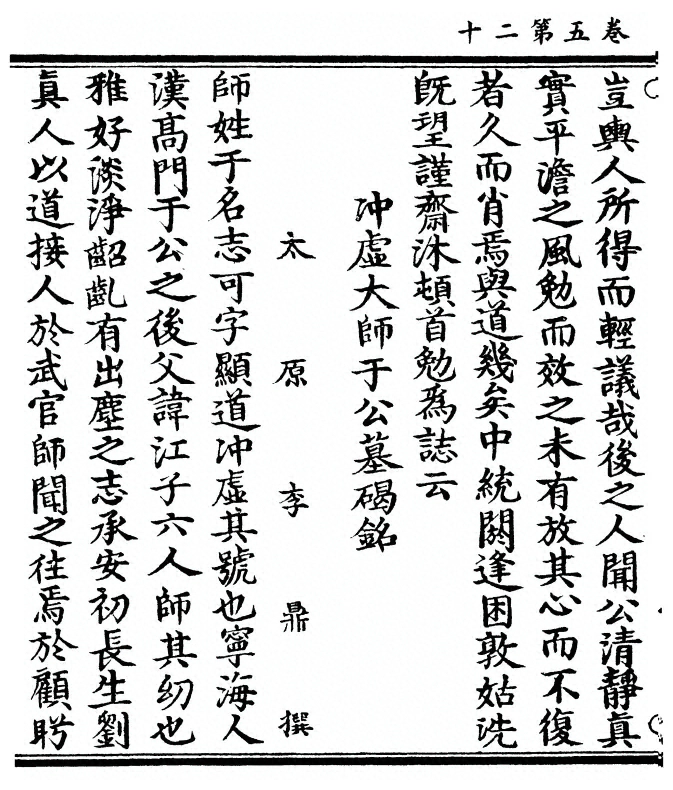 卷五第二十
豈輿人所得而輕議哉後之人聞公清靜真
實平澹之風勉而效之未有放其心而不復
者久而肖焉與道幾矣中統閼逢困敦姑洗
既望謹齋沐頓首勉為誌云
冲虛大師于公墓碣銘
太原李鼎撰
師姓于名志可字顯道冲虛其號也寧海人
漢高門于公之後父諱江子六人師其幼也
雅好淡淨齠齔有出塵之志承安初長生劉
真人以道接人於武官師聞之往焉於顧眄